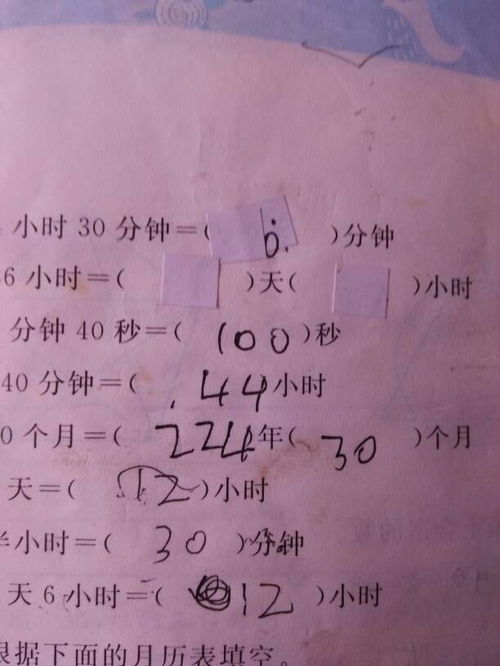 小时30分钟=( 0. )分钟
6小时=( )天( )小时
分钟40秒=( 100 )秒
40分钟=( .44 )小时
0个月=( 224 年( 30 )个月
天=( 12 )小时
小时=( 30 )分钟
天6小时=( 12 )小时
根据下面的月历表填空。